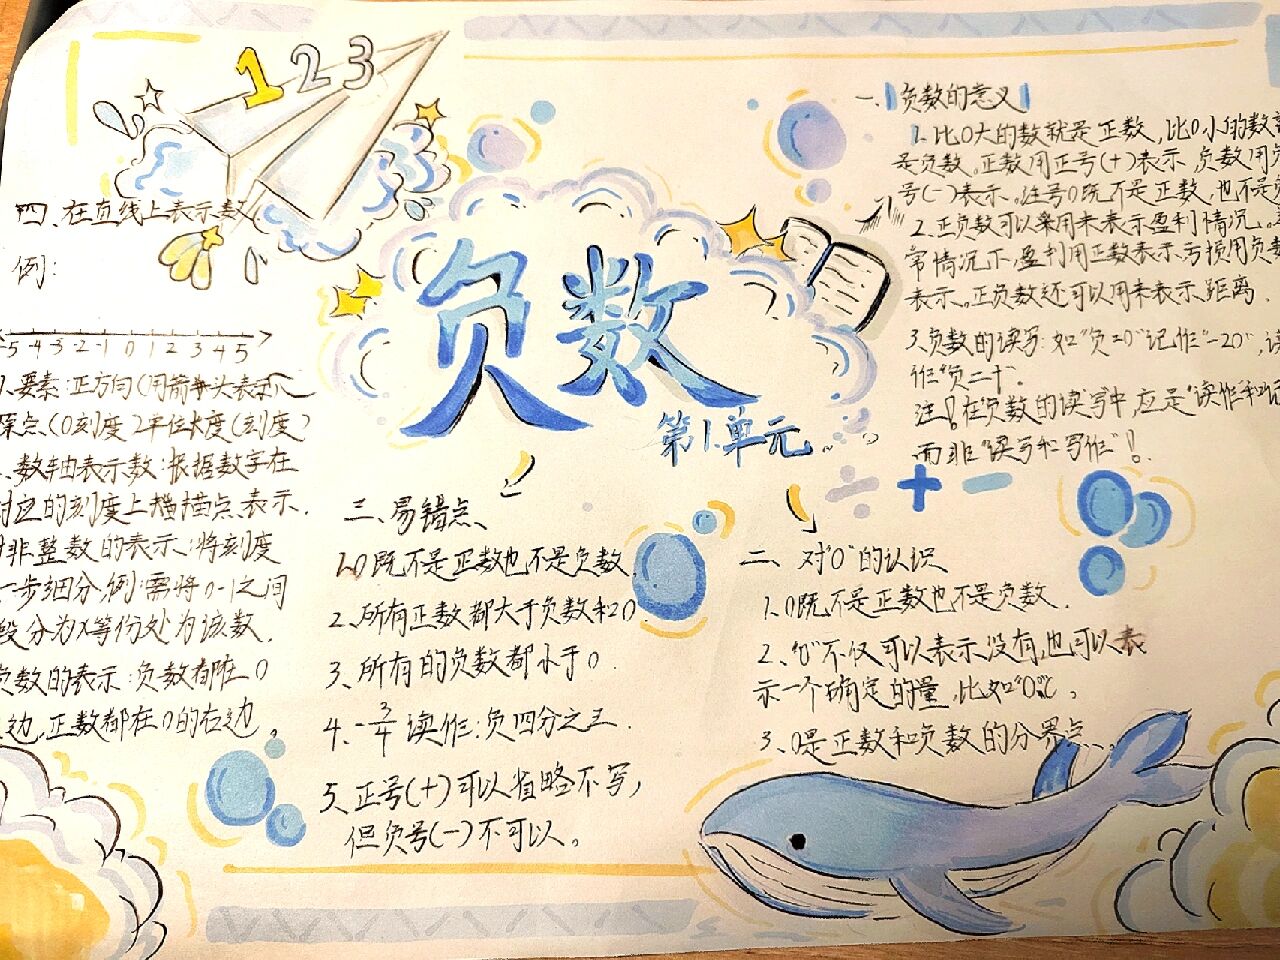 123
负数
第1.单元
一、负数的意义
1.比0大的数就是正数,比0小的数
是负数。正数用正号(+)表示,负数用
号(-)表示。注号0既不是正数,也不是
2.正负数可以采用来表示盈利情况。
常情况下,盈利用正数表示,亏损用负
表示。正负数还可以用来表示距离.
3.负数的读写:如"负二0"记作"-20",
作"负二十".
注!在负数的读写中,应是"读作和
而非"读写和写作"!
二、对"0"的认识
1.0既不是正数也不是负数.
2、"0"不仅可以表示没有,也可以表
示一个确定的量,比如"0"℃。
3、0是正数和负数的分界点、
三、易错点、
1.0既不是正数也不是负数
2、所有正数都大于负数和0
3、所有的负数都小于0.
4. -3/4 读作:负四分之三.
5、正号(+)可以省略不写,
但负号(-)不可以。
四、在直线上表示数
例:
-5 -4 -3 -2 -1 0 1 2 3 4 5
要素:正方向(用箭头表示)
原点(0刻度)单位长度(刻度)
、数轴表示数:根据数字在
对应的刻度上描点表示.
非整数的表示:将刻度
一步细分,例:需将0-1之间
段分为X等份处为该数.
负数的表示:负数都在0
边,正数都在0的右边。
+ − ÷